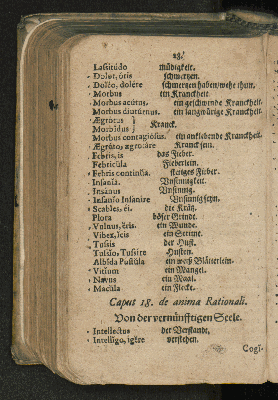 28.
Lassitúdo müdigkeit.
- Dolor, óris schmertzen.
- Doléo, dolére schmertzen haben/wehe thun.
- Morbus ein Kranckheit.
- Morbus acútus. ein geschwinde Kranckheit.
Morbus diutúrnus. ein langwürige Kranckheit.
- Ægrótus }
Morbídus } Kranck.
Morbus contagiósus. ein anklebende Kranckheit.
- Ægróto, ægrotáre Kranck seyn.
- Febris, is das Fieber.
- Febricŭla Fieberlein.
- Febris contínŭa. stetiges Fieber.
- Insanía. Unsinnigkeit.
- Insánus Unsinnig.
- Insanío Insaníre Unsinnig seyn.
- Scabĭes, éi. die Krätz.
Plora böser Grindt.
- Vulnus, ĕris. ein Wunde.
- Vibex, ícis ein Strime.
- Tussis der Hust.
- Tussĭo, Tussíre Husten.
Albĭda Pustŭla ein weiß Blätterlein.
- Vitĭum ein Mangel.
- Nævus ein Maal.
- Macŭla ein Flecke.
Caput 18. de anima Rationali.
Von der vernünfftigen Seele.
- Intellectus der Verstandt.
- Intellĭgo, igĕre verstehen.
Cogĭ-